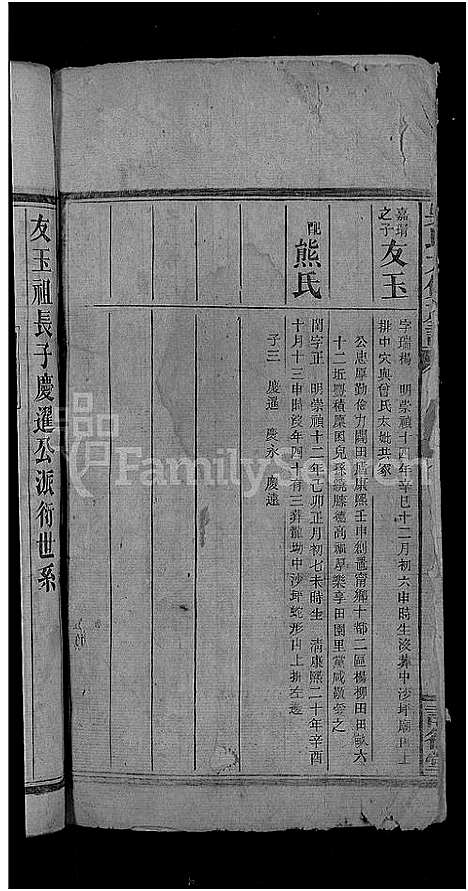 嘉瑁之子
友玉
字瑞楊 明崇禎十四年辛巳十二月初六申時生沒葬中沙坪廟山上
排中穴與曾氏太妣共冢
公忠厚勤儉力闢田廬康熙壬申創置甯鄉十都二區楊柳田田畝六
十二坵粵積稟因兒孫繞膝德高福厚樂享田園里黨咸歡慕之
配
熊氏
閏字正 明崇禎十二年己卯正月初七未時生 清康熙二十年辛酉
十月十三申時沒年四十有三葬龍坳中沙坪蛇形山上排左邊
子三 慶暹 慶永 慶遠
友玉祖長子慶暹公派衍世系
FamilySearch